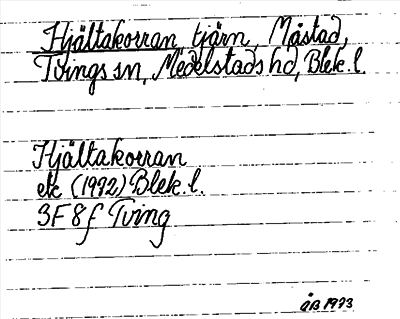 Hjältakorran, tjärn, Måstad,
Tvings sn, Medelstads hd, Blek. l.
Hjältakorran
ek (1972) Blek. l.
3F 8f Tving
ÅB 1973